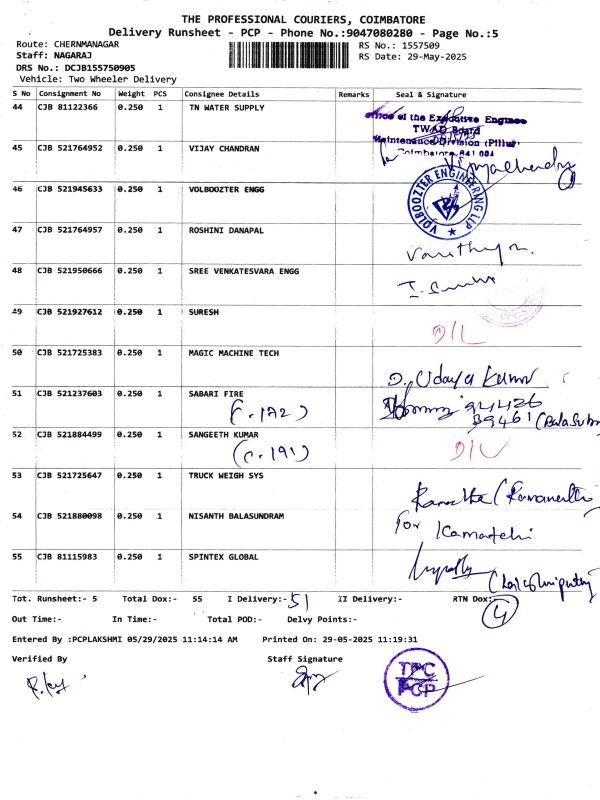 THE PROFESSIONAL COURIERS, COIMBATORE
Delivery Runsheet - PCP - Phone No.:9047080280 - Page No.:5
Route: CHERNMANAGAR RS No.: 1557509
Staff: NAGARAJ RS Date: 29-May-2025
DRS No.: DCJB155750905
Vehicle: Two Wheeler Delivery
S No Consignment No Weight PCS Consignee Details Remarks Seal & Signature
44 CJB 81122366 0.250 1 TN WATER SUPPLY
Office of the Executive Engineer
TWAD Board
Maintenance Division (Pillur)
Coimbatore 641 004
45 CJB 521764952 0.250 1 VIJAY CHANDRAN
Vijayachendra
46 CJB 521945633 0.250 1 VOLBOOZTER ENGG
VOLBOOZTER ENGINEERING LLP
47 CJB 521764957 0.250 1 ROSHINI DANAPAL
48 CJB 521950666 0.250 1 SREE VENKATESVARA ENGG
49 CJB 521927612 0.250 1 SURESH
D/L
50 CJB 521725383 0.250 1 MAGIC MACHINE TECH
D. Udaya Kumar
51 CJB 521237603 0.250 1 SABARI FIRE
(c.172) 94426
39461 (Balasubm
52 CJB 521884499 0.250 1 SANGEETH KUMAR
(c.191) D/L
53 CJB 521725647 0.250 1 TRUCK WEIGH SYS
54 CJB 521880098 0.250 1 NISANTH BALASUNDRAM
for Kamatchi
55 CJB 81115983 0.250 1 SPINTEX GLOBAL
Tot. Runsheet:- 5 Total Dox:- 55 I Delivery:- 51 II Delivery:- RTN Dox: 4
Out Time:- In Time:- Total POD:- Delvy Points:-
Entered By :PCPLAKSHMI 05/29/2025 11:14:14 AM Printed On: 29-05-2025 11:19:31
Verified By Staff Signature
TPC
PCP